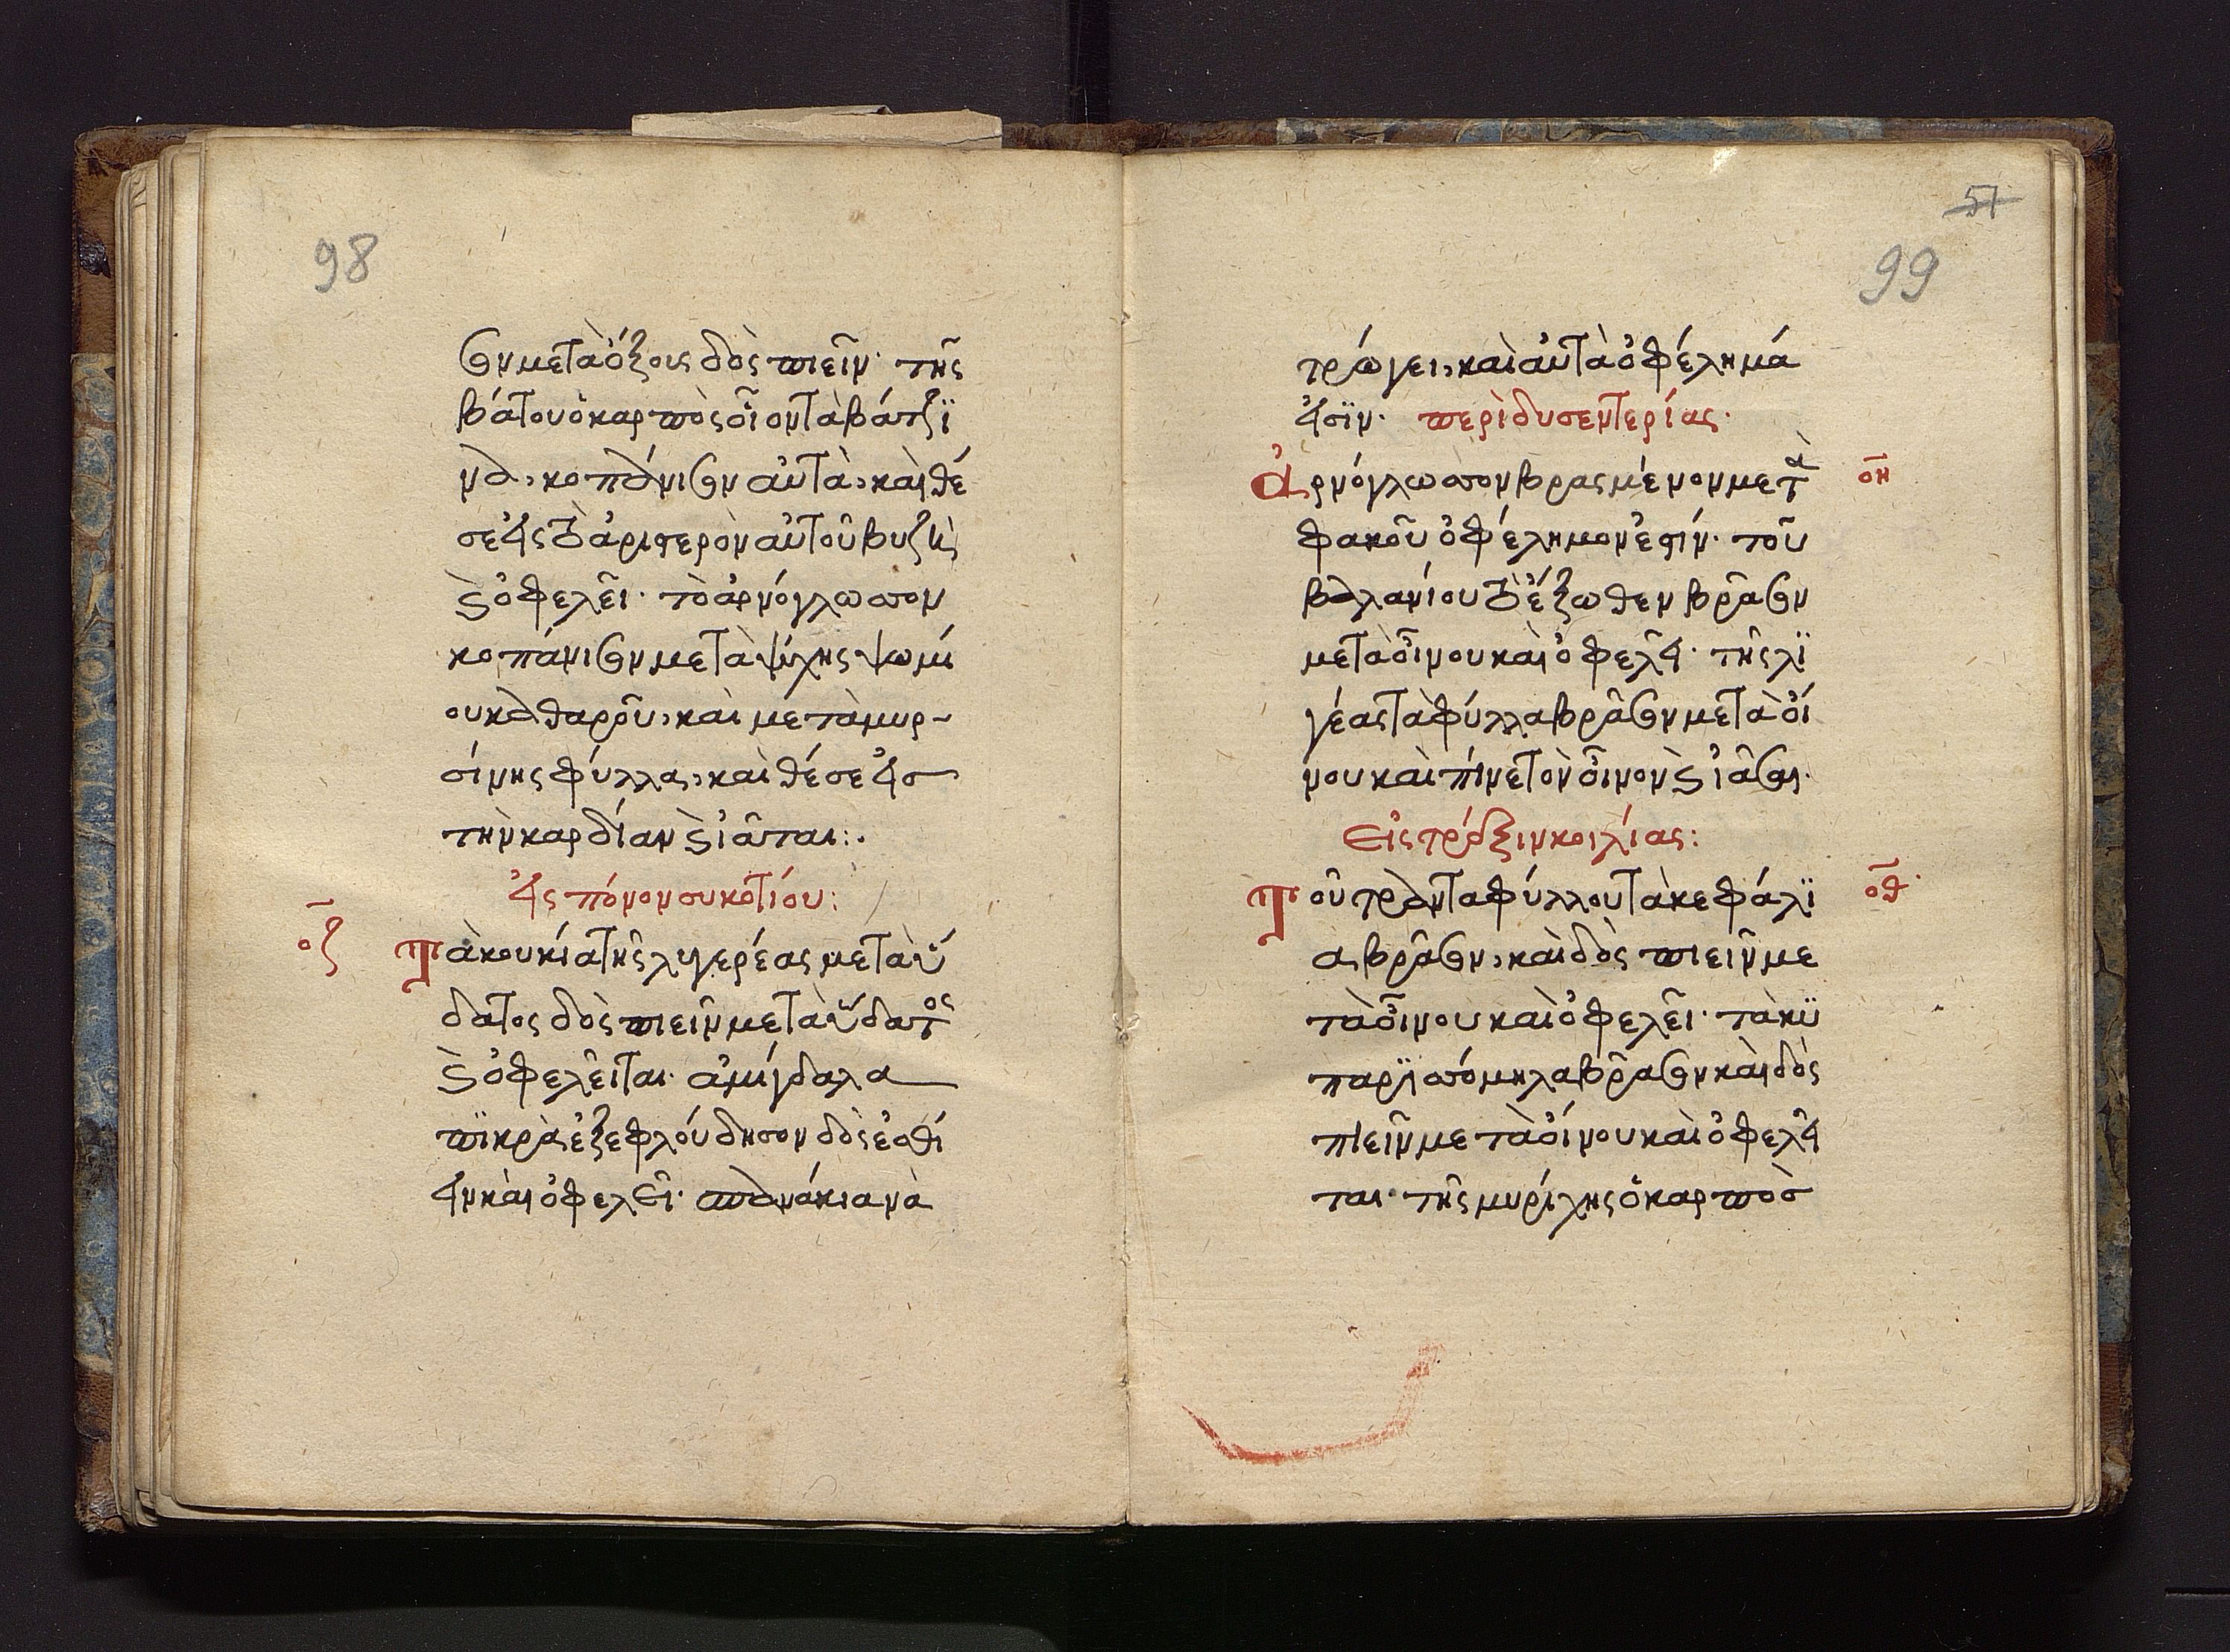 98
σον μετὰ ὄξους δὸς πιεῖν· τῆς
βάτου ὁ καρπὸς οἷον τὰ βάτζϊ
να, κοπάνισον αὐτὰ, καὶ θέ
σε εἰς τὸ ἀριστερὸν αὐτοῦ βυζὶ
καὶ ὀφελεῖ· τὸ ἀρνόγλωσσον
κοπάνισον μετὰ ψίχης ψωμί
ου καθαροῦ, καὶ μετὰ μυρ-
σίνης φύλλα, καὶ θέσε εἰσ
τὴν καρδίαν καὶ ἰᾶται:.
εἰς πόνον συκοτίου:
οζ
Τὰ κουκία τῆς λυγερέας μετὰ ὕ
δατος δὸς πιεῖν μετὰ ὕδατος
καὶ ὀφελεῖται· ἀμίγδαλα
πϊκρὰ ἐξεφλούδησον δὸς ἐσθί
ειν καὶ ὀφελεῖ· σπανάκια νὰ
51
99
τρώγει, καὶ αὐτὰ ὀφέλημά
εἰσϊν· περὶ δυσεντερίας·
Ἀρνόγλωσσον βρασμένον μετὰ
οη
φακοῦ ὀφέλημον ἐστίν· τοῦ
βαλανίου τὸ ἔξωθεν βρᾶσον
μετὰ οἴνου καὶ ὀφελεῖ· τῆς λϊ
γέας τὰ φύλλα βρᾶσον μετὰ οἴ
νου καὶ πίνε τὸν οἶνον καὶ ἰᾶσαι·
Εἰς τρέξιν κοιλίας:
Τοῦ τριανταφύλλου τὰ κεφάλϊ
οθ
α, βρᾶσον, καὶ δὸς πιεῖν με
τὰ οἴνου καὶ ὀφελεῖ· τὰ κϋ
παρϊσσόμηλα βρᾶσον καὶ δὸς
πιεῖν μετὰ οἴνου καὶ ὀφελεῖ
ται· τῆς μυρίκης ὁ καρπὸσ